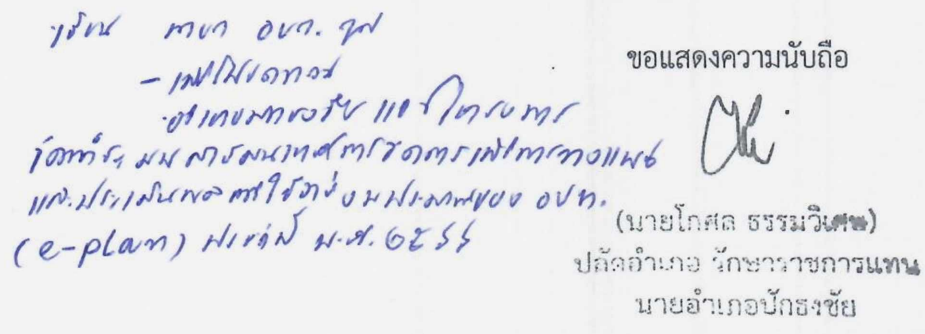 เรียน นายก อบต. จูม
- เพื่อโปรดทราบ
- อำเภอปักธงชัย แจ้งโครงการ
ระบบสารสนเทศการจัดการเพื่อการวางแผน
และประเมินผลการใช้จ่ายงบประมาณของ อปท.
(e-plan) ประจำปี พ.ศ. ๒๕๕๕
ขอแสดงความนับถือ
(นายโกศล ธรรมวิเศษ)
ปลัดอำเภอ รักษาราชการแทน
นายอำเภอปักธงชัย